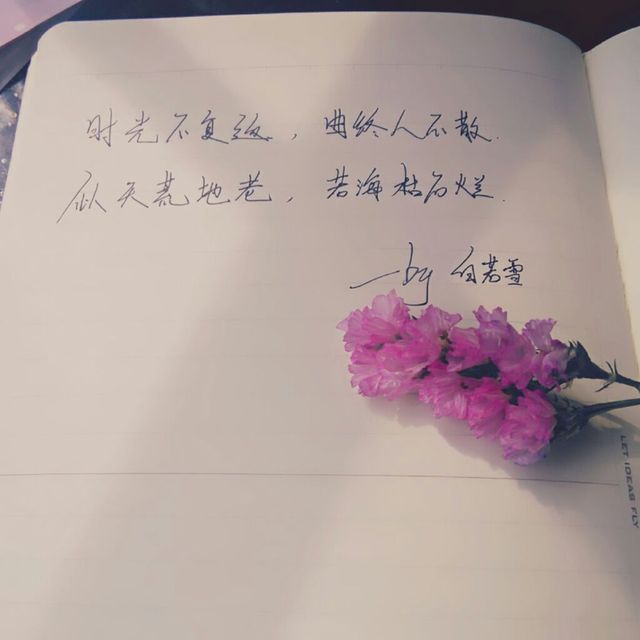 时光不复返，曲终人不散.
似天荒地老，若海枯石烂.
—by 白若雪
LET IDEAS FLY